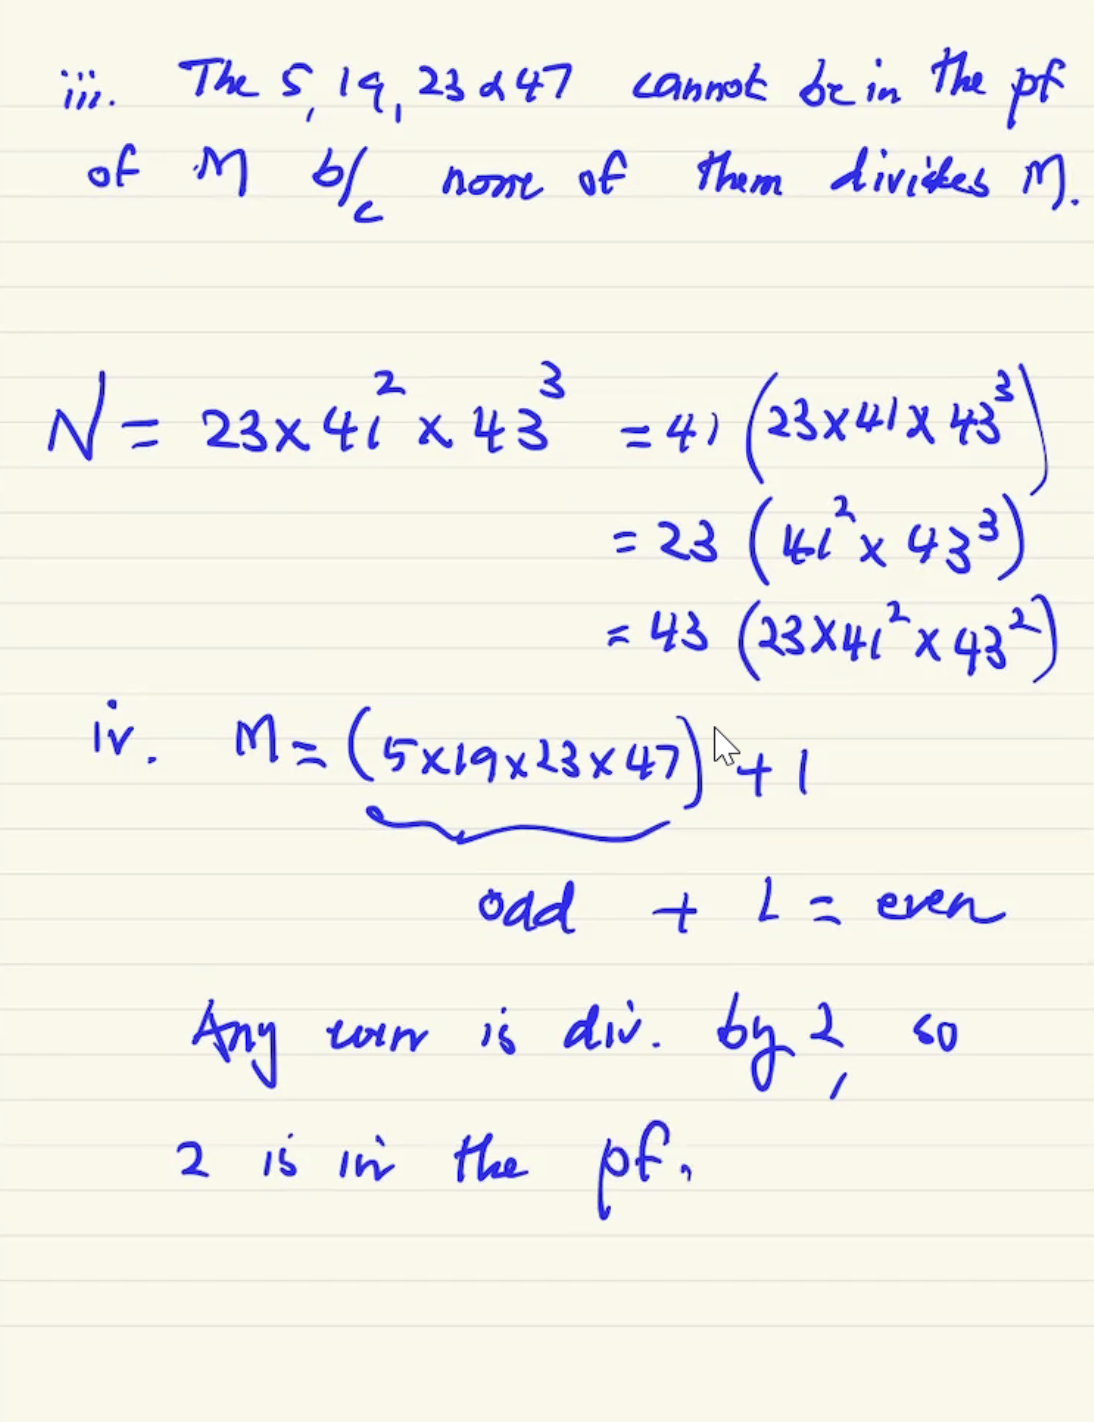 iii. The 5, 19, 23 & 47 cannot be in the pf
of M b/c none of them divides M.
N = 23 x 41² x 43³ = 41 (23 x 41 x 43³)
= 23 (41² x 43³)
= 43 (23 x 41² x 43²)
iv. M = (5 x 19 x 23 x 47) + 1
odd + 1 = even
Any even is div. by 2, so
2 is in the pf.